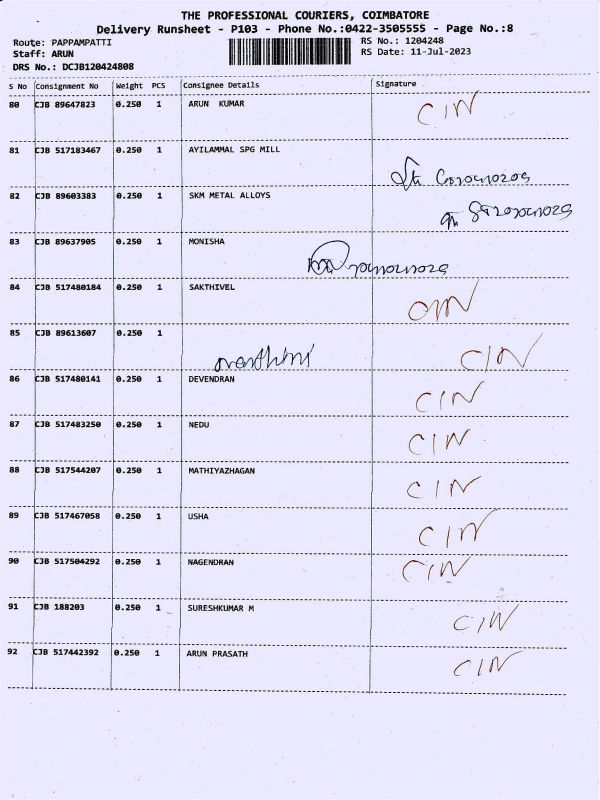 THE PROFESSIONAL COURIERS, COIMBATORE
Delivery Runsheet - P103 - Phone No.:0422-3505555 - Page No.:8
Route: PAPPAMPATTI RS No.: 1204248
Staff: ARUN RS Date: 11-Jul-2023
DRS No.: DCJB120424808
S No Consignment No Weight PCS Consignee Details Signature
80 CJB 89647823 0.250 1 ARUN KUMAR CIN
81 CJB 517183467 0.250 1 AYILAMMAL SPG MILL
82 CJB 89603383 0.250 1 SKM METAL ALLOYS
83 CJB 89637905 0.250 1 MONISHA
84 CJB 517480184 0.250 1 SAKTHIVEL
85 CJB 89613607 0.250 1 CIN
86 CJB 517480141 0.250 1 DEVENDRAN CIN
87 CJB 517483250 0.250 1 NEDU CIN
88 CJB 517544207 0.250 1 MATHIYAZHAGAN CIN
89 CJB 517467058 0.250 1 USHA CIN
90 CJB 517504292 0.250 1 NAGENDRAN CIN
91 CJB 188203 0.250 1 SURESHKUMAR M CIN
92 CJB 517442392 0.250 1 ARUN PRASATH CIN